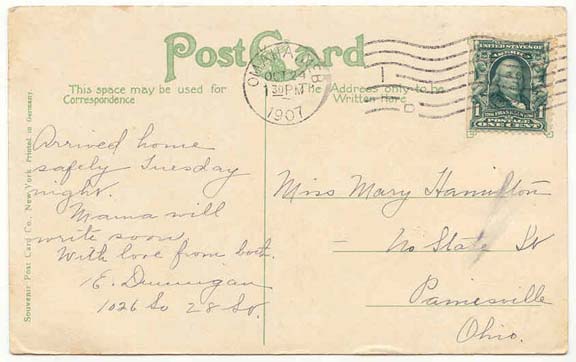 Post Card
This space may be used for
Correspondence
The Address only to be
Written Here
OMAHA, NEB.
OCT 24
130 PM
1907
UNITED STATES OF
AMERICA
1 1
ONE CENT
Souvenir Post Card Co., New York, Printed in Germany.
Arrived home
safely Tuesday
night.
Mama will
write soon
With love from both.
E. Dunnigan
1026 So 28 St.
Miss Mary Hamilton
No State St
Painesville
Ohio.